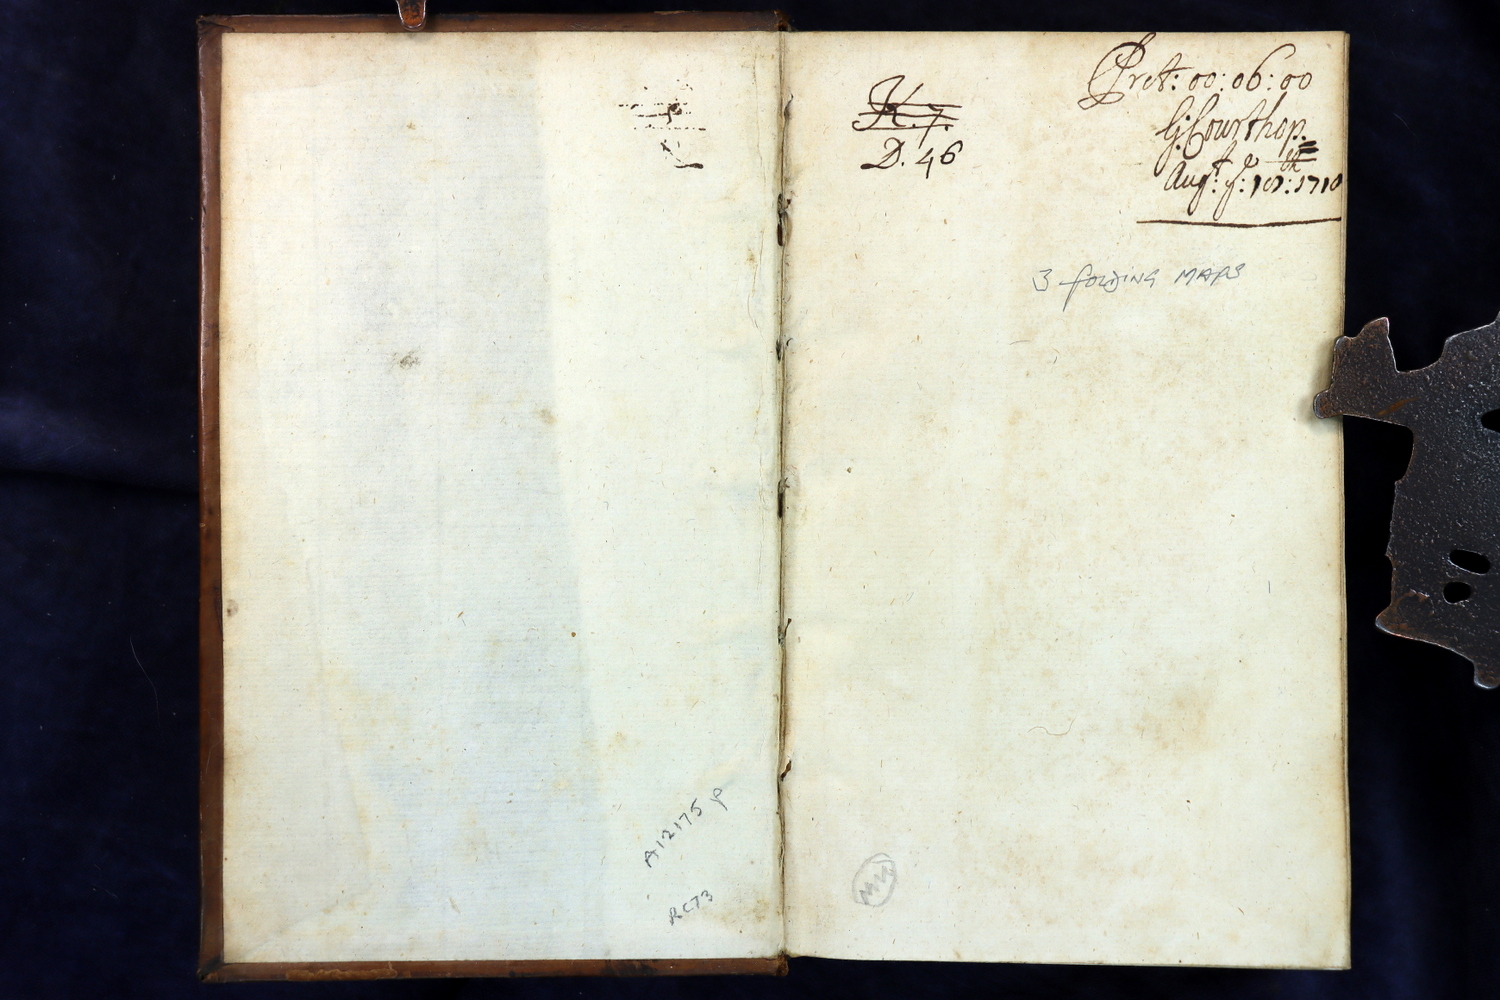 A12175 p
RC73
K. 7.
D. 46
Pret: 00: 06: 00
G: Courthop.
Augt: ye: 10th: 1710
3 FOLDING MAPS